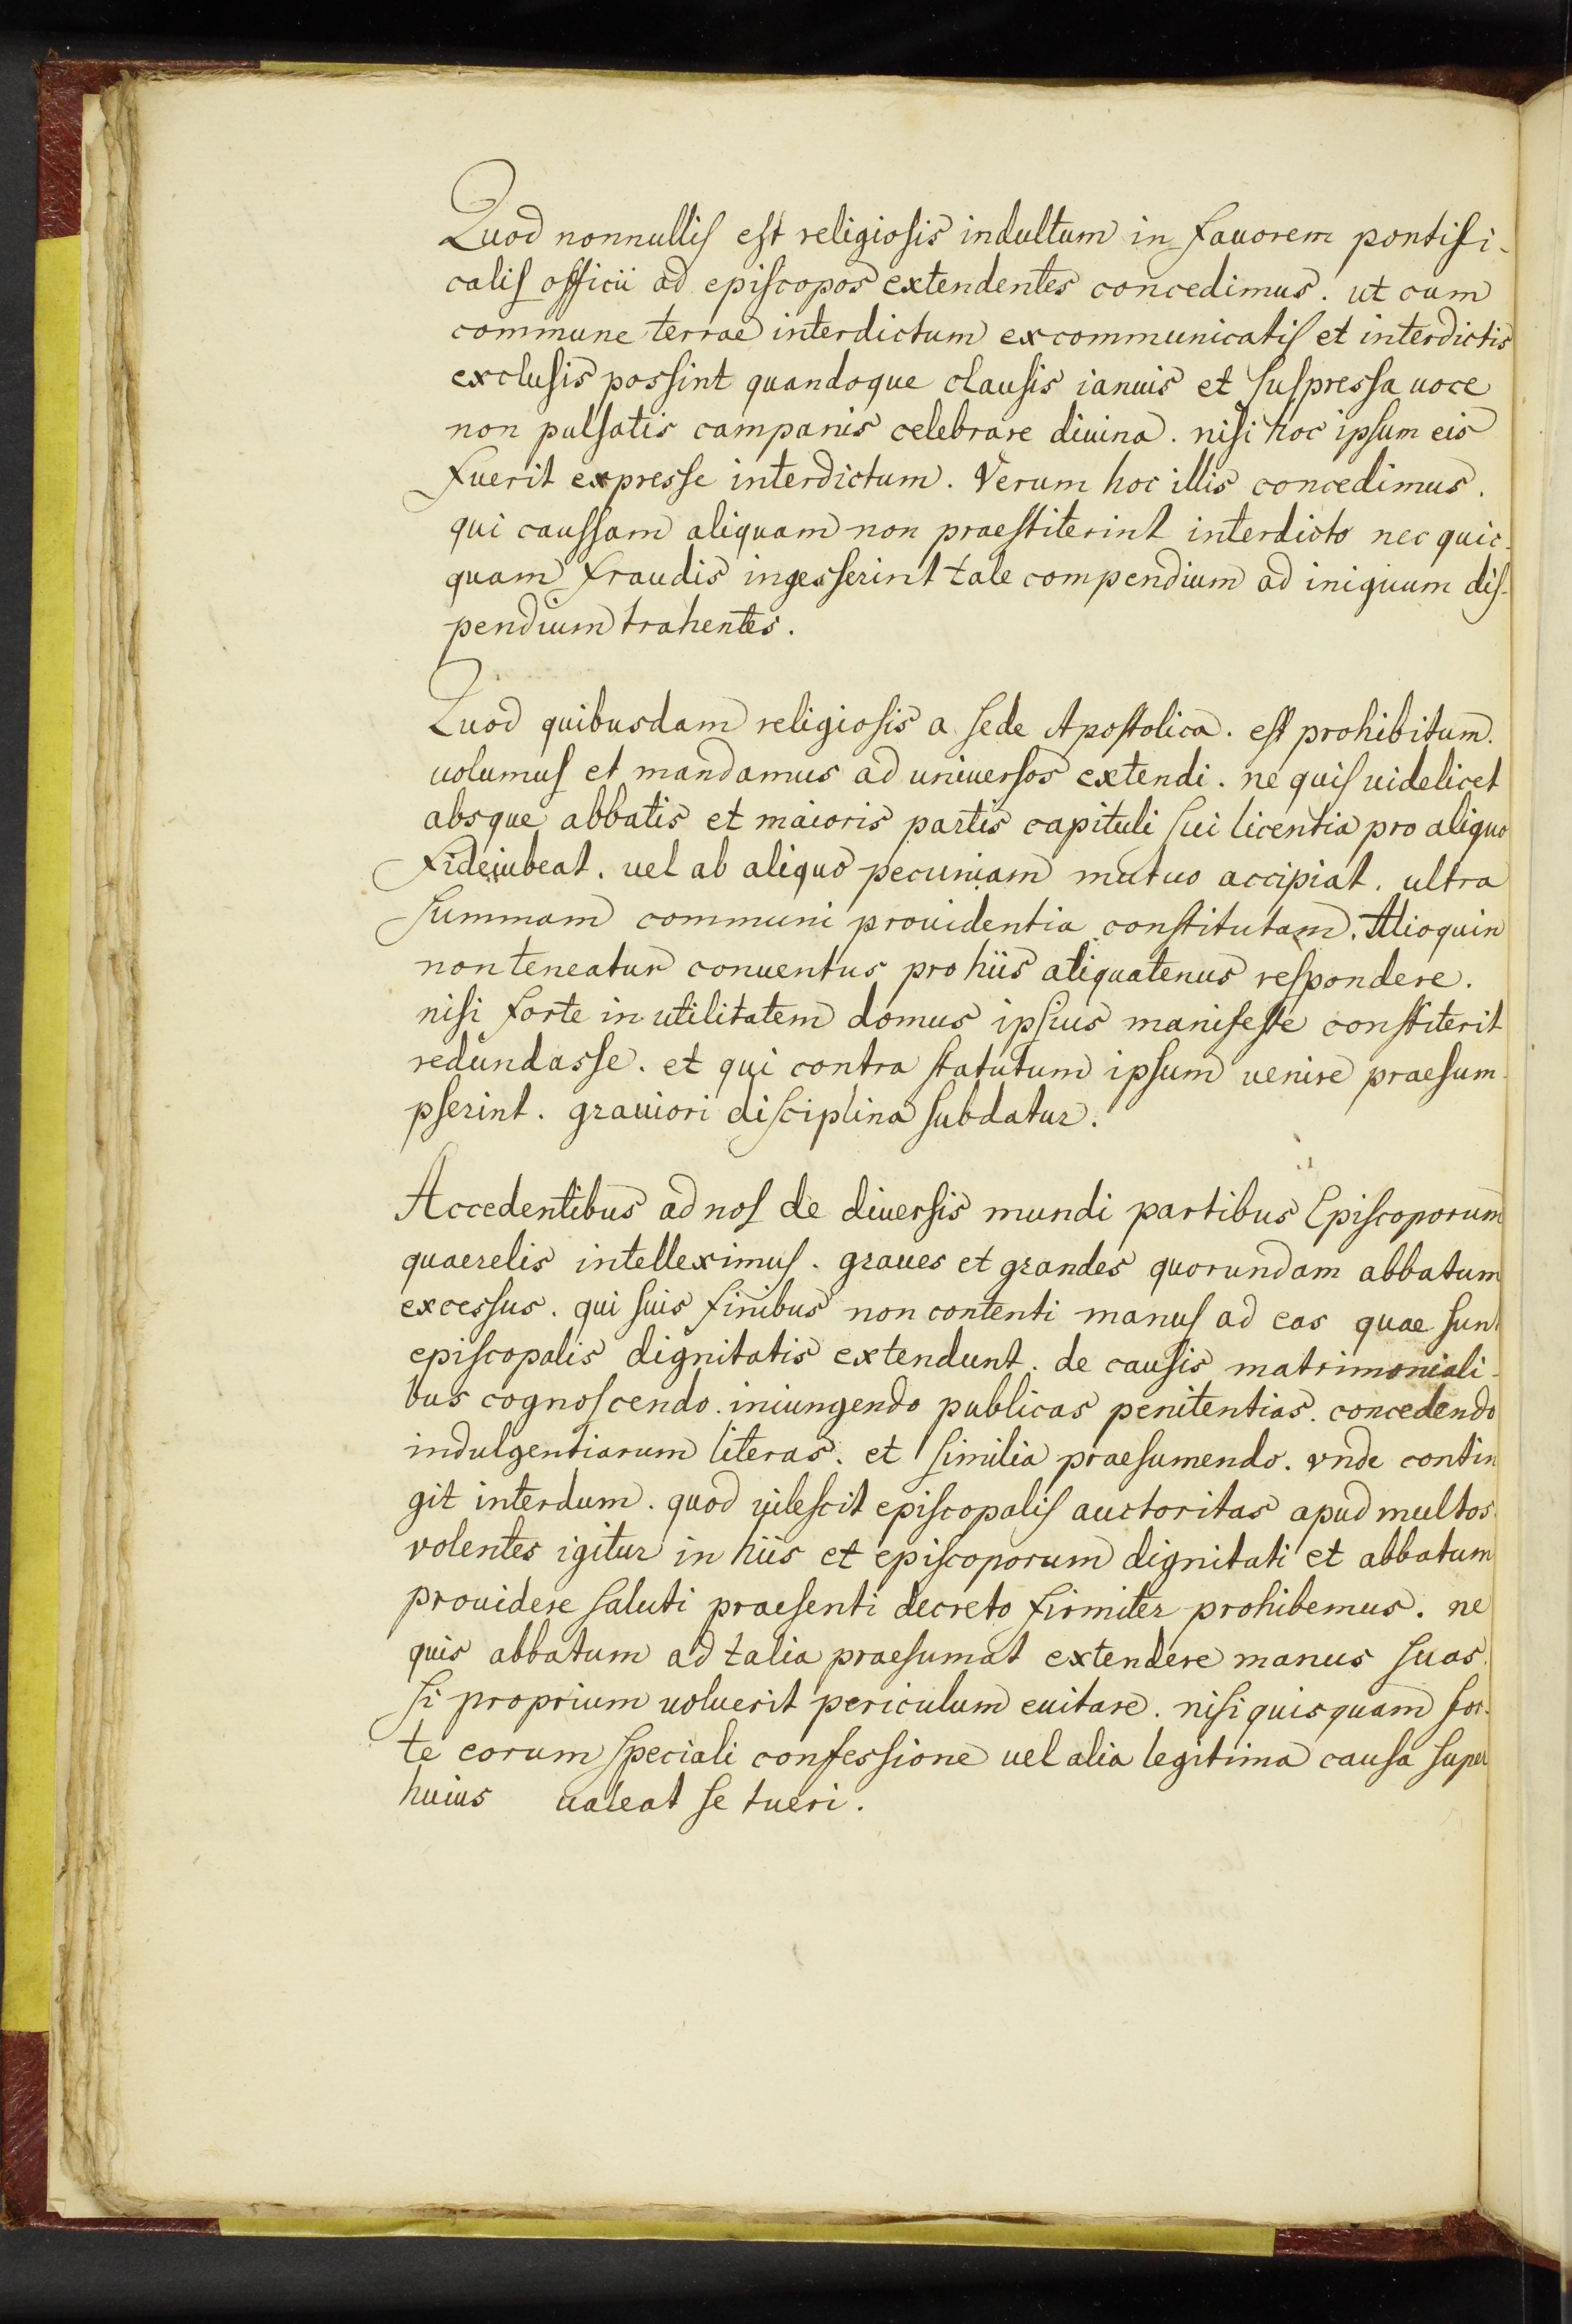 Quod nonnullis est religiosis indultum in fauorem pontifi-
calis officii ad episcopos extendentes concedimus. ut cum
commune terrae interdictum excommunicatis et interdictis
exclusis possint quandoque clausis ianuis et suspressa uoce
non pulsatis campanis celebrare diuina. nisi hoc ipsum eis
fuerit expresse interdictum. Verum hoc illis concedimus.
qui caussam aliquam non praestiterint interdicto nec quic-
quam fraudis ingesserint tale compendium ad iniquum dis-
pendium trahentes.
Quod quibusdam religiosis a sede Apostolica. est prohibitum.
uolumus et mandamus ad uniuersos extendi. ne quis uidelicet
absque abbatis et maioris partis capituli sui licentia pro aliquo
fideiubeat. uel ab aliquo pecuniam mutuo accipiat. ultra
summam communi prouidentia constitutam. Alioquin
non teneatur conuentus pro hiis aliquatenus respondere.
nisi forte in utilitatem domus ipsius manifeste constiterit
redundasse. et qui contra statutum ipsum uenire praesum-
pserint. grauiori disciplina subdatur.
Accedentibus ad nos de diuersis mundi partibus Episcoporum
quaerelis intelleximus. graues et grandes quorundam abbatum
excessus. qui suis finibus non contenti manus ad eas quae sunt
episcopalis dignitatis extendunt. de causis matrimoniali-
bus cognoscendo. iniungendo publicas penitentias. concedendo
indulgentiarum literas. et similia praesumendo. vnde contin
git interdum. quod uilescit episcopalis auctoritas apud multos.
volentes igitur in hiis et episcoporum dignitati et abbatum
prouidere saluti praesenti decreto firmiter prohibemus. ne
quis abbatum ad talia praesumat extendere manus suas.
si proprium uoluerit periculum euitare. nisi quisquam for-
te eorum speciali confessione uel alia legitima causa super
huius ualeat se tueri.